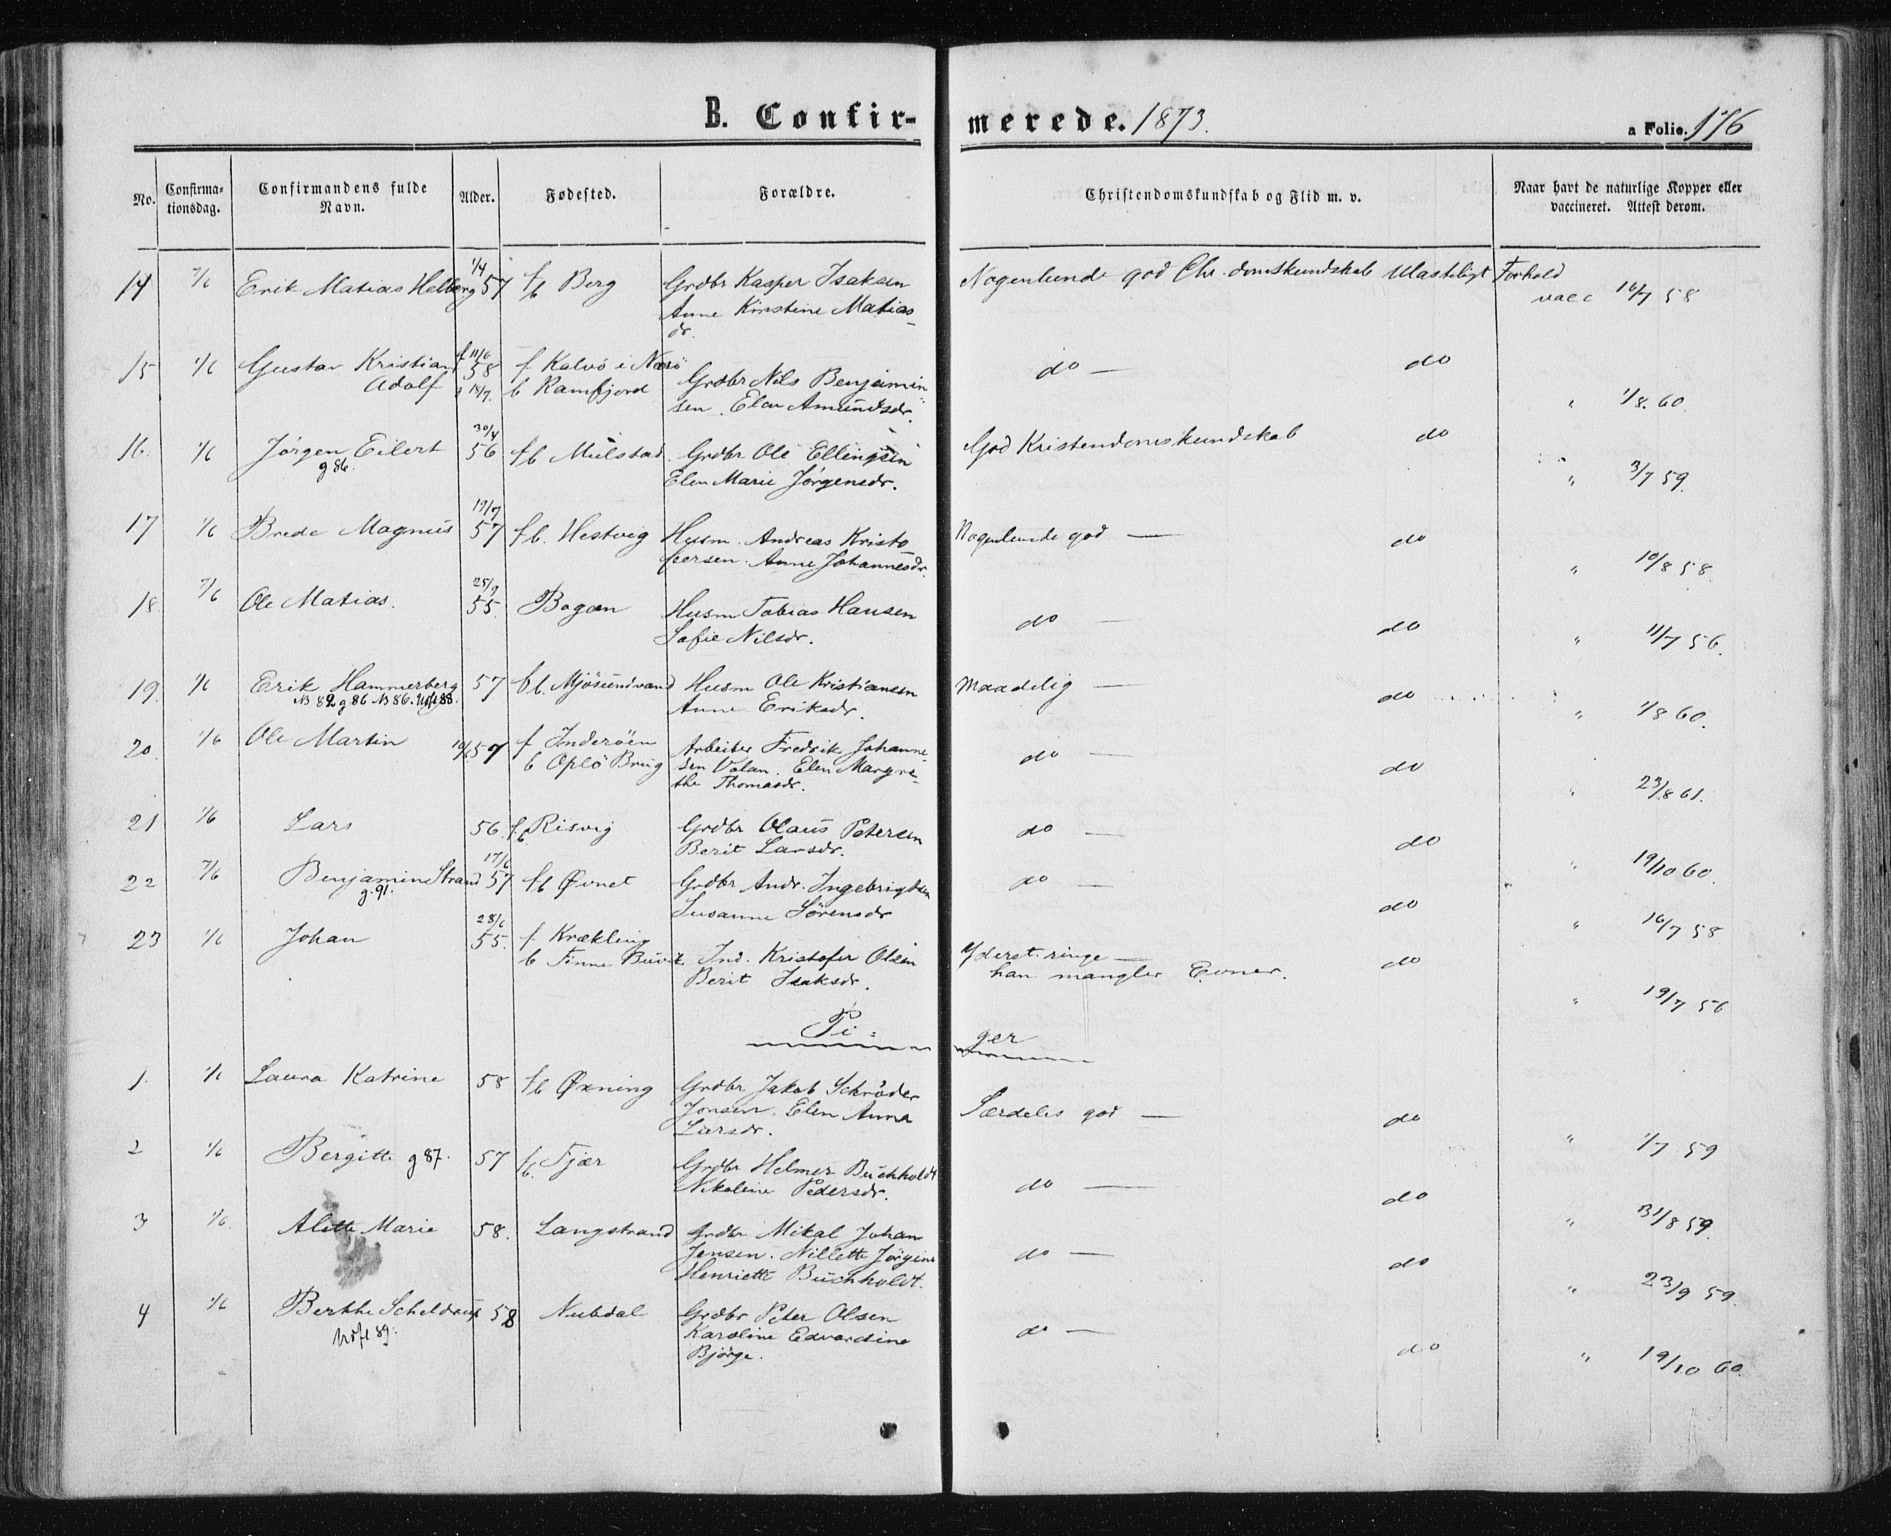 B. Confir- merede. 1873. a Folio. 176
No. Confirma- tionsdag. Confirmandens fulde Navn. Alder. Fødested. Forældre. Christendomskundskab og Flid m. v. Naar havt de naturlige Kopper eller vaccineret. Attest derom.
14 1/6 Erik Matias Helberg 1/4 57 fb Berg Grdbr Kasper Isaksen Nogenlunde god Chr.domskundskab Ulasteligt Forhold
Anne Kirstine Matias- vacc 16/7 58
dr.
15 1/6 Gustav Kristian f 11/6 58 f Kalvø i Nærø do — do
Adolf b Ramfjord Grdbr Nils Benjamin-
sen. Elen Amundsdr. " 1/8. 60.
16. 1/6 Jørgen Eilert 30/4 56 fb Mulstad Grdbr Ole Ellingsen God Kristendomskundskab do
g 86. Elen Marie Jørgensdr. " 3/7 59.
17 1/6 Brede Magnus 19/7 57 fb. Hestvig Husm. Andreas Kristo Nogenlunde god — do
fersen. Anne Johannesdr. " 10/8 58.
18. 1/6 Ole Matias. 25/9 55. Bogen Husm Tobias Hansen do — do
Sofie Nilsdr. " 11/7 56.
19. 1/6 Erik Hammerberg 57 fb. Mjösundvand Husm Ole Kristiansen Maadelig — do
Anne Eriksdr. " 1/8 60.
20. 1/6 Ole Martin 57 f Inderöen Arbeider Fredrik Johanne- do — do
b Oplö Brug sen Valan. Elen Margre-
the Thomasdr. " 23/8 61.
21 1/6 Lars 56. fb Risvig Grdbr Olaus Petersen do — do
Berit Larsdr. " 19/10 60.
22 1/6 Benjamin Strand 17/6 57 fb Øvnet Grdbr Andr. Ingebrigtsen do — do
g. 91. Susanne Sörensdr " 16/7 58
23 1/6 Johan 28/6 55. f Krækling
b Finne Ind. Kristofer Olsen Yderst ringe — do
Berit Isaksdr. han mangler Evner.
" 19/7 56
Pi- ger
1. 1/6 Laura Katrine 58 fb Øxning Grdbr Jakob Schrøder
Jonsen. Elen Anna Særdeles god — do
Larsdr. " 1/7 59
2 1/6 Bergitte g 87. 57 fb. Fjær Grdbr Helmer Buchholdt
Nikoline Pedersdr. do — do
" 31/8 59.
3 1/6. Alette Marie 58. Langstrand Grdbr Mikal Johan
Jensen. Nillette Jörgine do — do
Henriette Buchholdt. " 23/9 59.
4 1/6 Berthe Scheldrup 58 Nubdal Grdbr Peter Olsen do — do
Udfl 89. Karoline Edvardine
Bjørge. " 19/10 60.